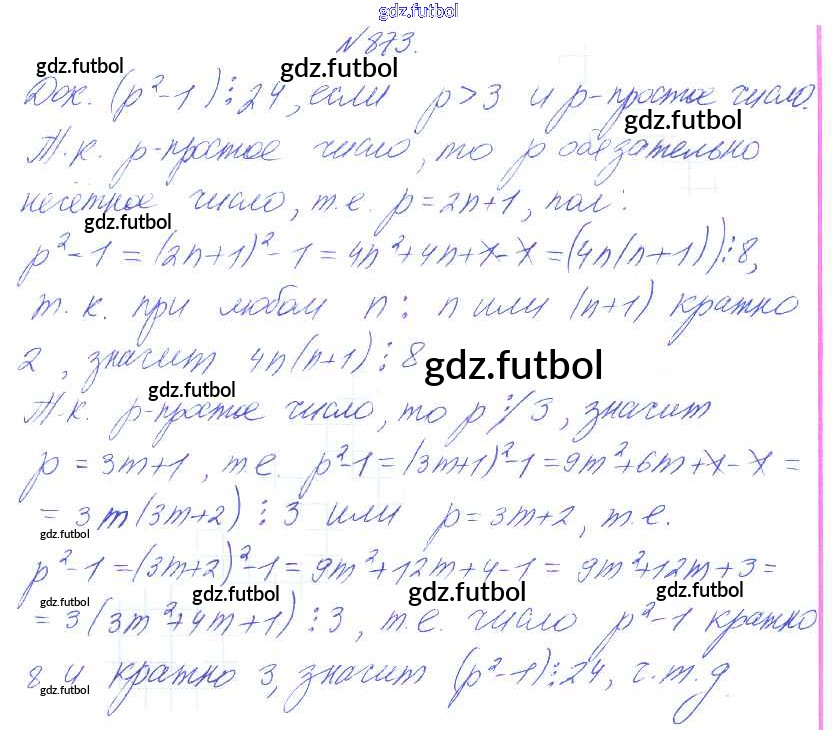 gdz.futbol
№ 873.
gdz.futbol gdz.futbol
Док. (p²-1)⋮24, если p>3 и p-простое число.
gdz.futbol
Т.к. p-простое число, то p обязательно
нечётное число, т.е. p=2n+1, пол:
gdz.futbol
p²-1=(2n+1)²-1=4n²+4n+1-1=(4n(n+1))⋮8,
т.к. при любом n: n или (n+1) кратно
2, значит 4n(n+1)⋮8
gdz.futbol
gdz.futbol
Т.к. p-простое число, то p⋮̸3, значит
p=3m+1, т.е. p²-1=(3m+1)²-1=9m²+6m+1-1=
=3m(3m+2)⋮3 или p=3m+2, т.е.
gdz.futbol
p²-1=(3m+2)²-1=9m²+12m+4-1=9m²+12m+3=
gdz.futbol gdz.futbol gdz.futbol gdz.futbol
=3(3m²+4m+1)⋮3, т.е. число p²-1 кратно
8 и кратно 3, значит (p²-1)⋮24, ч.т.д
gdz.futbol